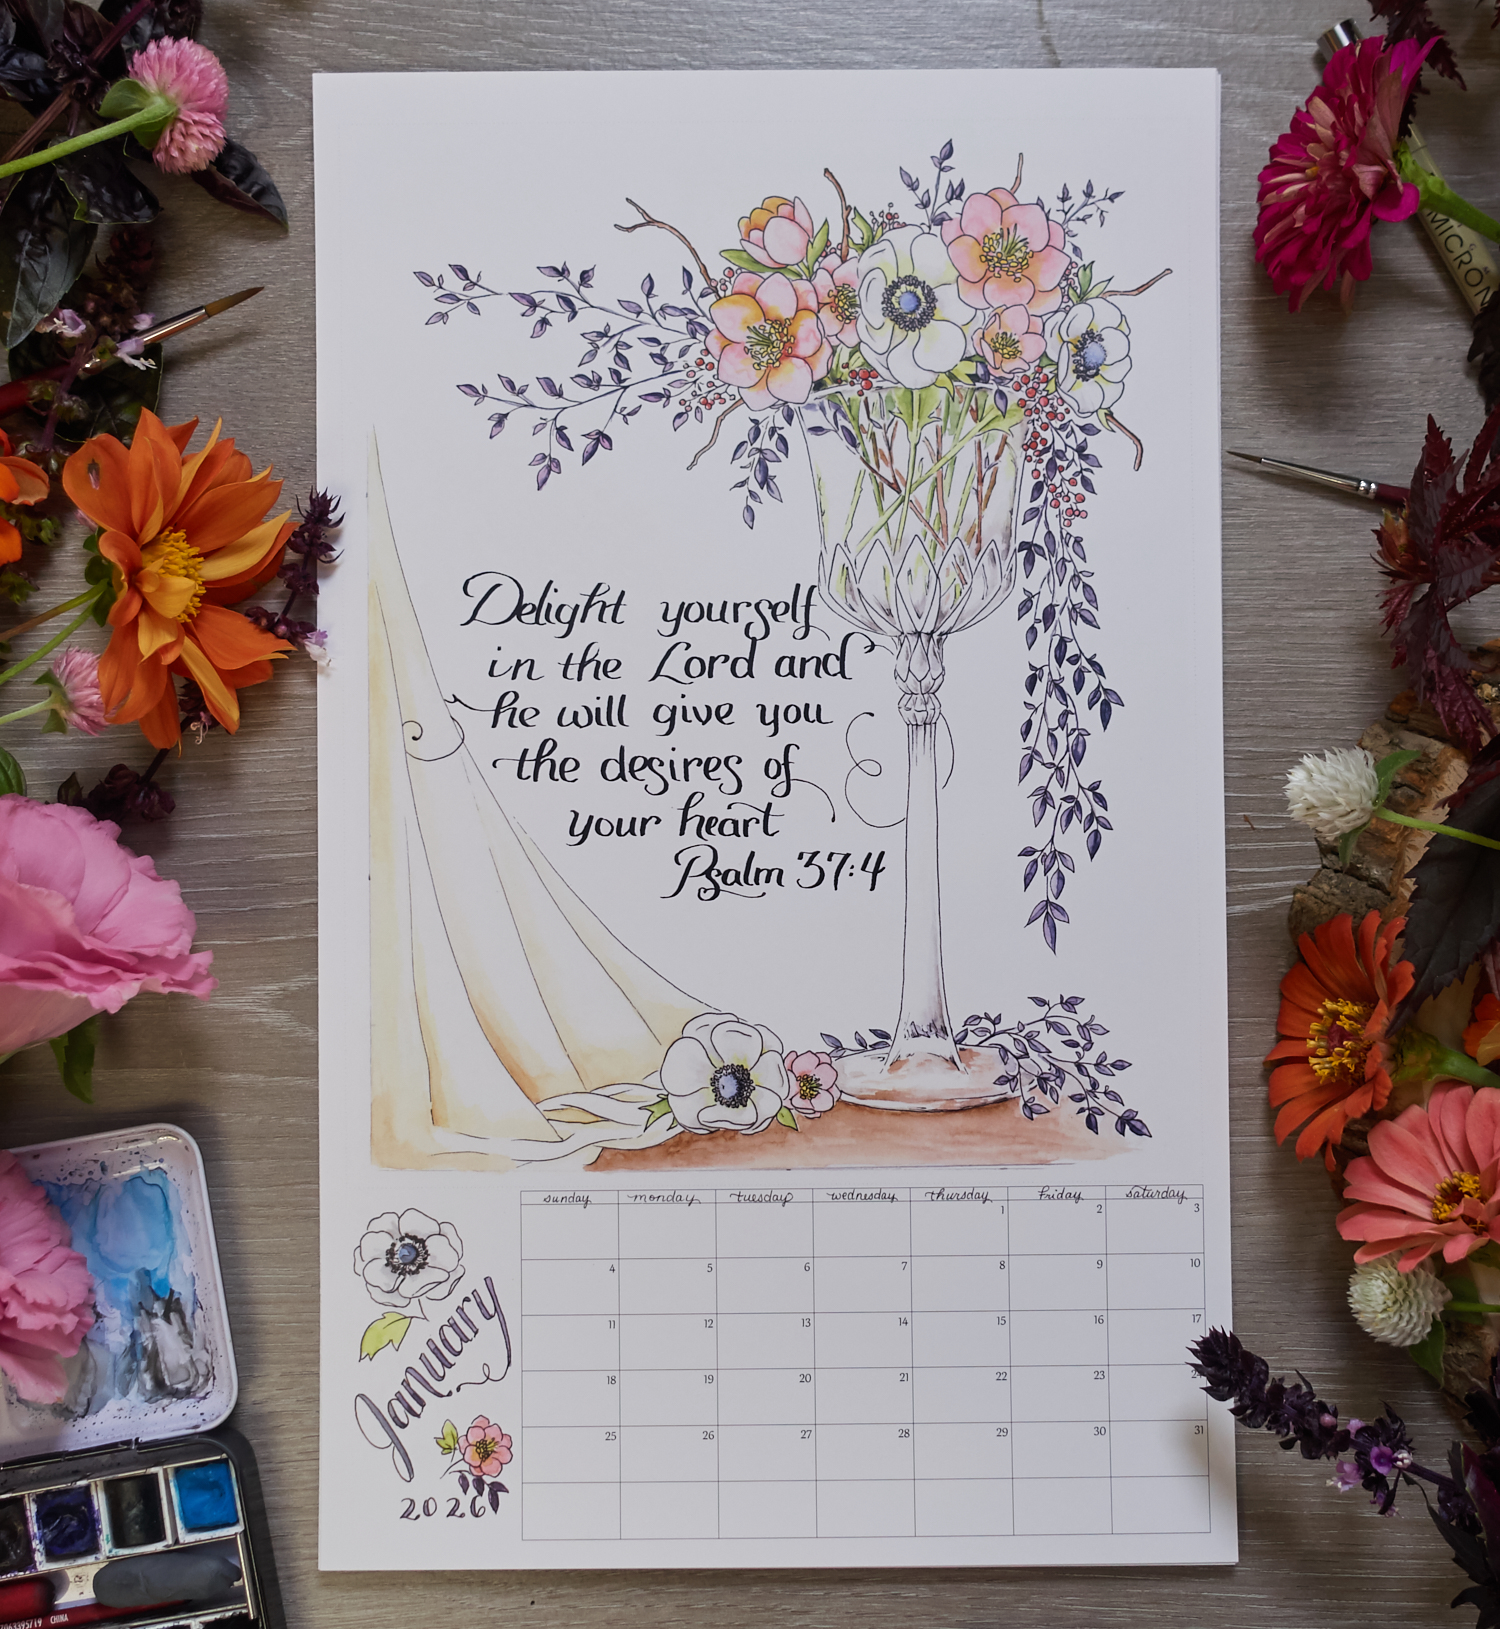 Delight yourself
in the Lord and
he will give you
the desires of
your heart
Psalm 37:4
January
2026
sunday monday tuesday wednesday thursday friday saturday
1 2 3
4 5 6 7 8 9 10
11 12 13 14 15 16 17
18 19 20 21 22 23 24
25 26 27 28 29 30 31
MICRON
CHINA